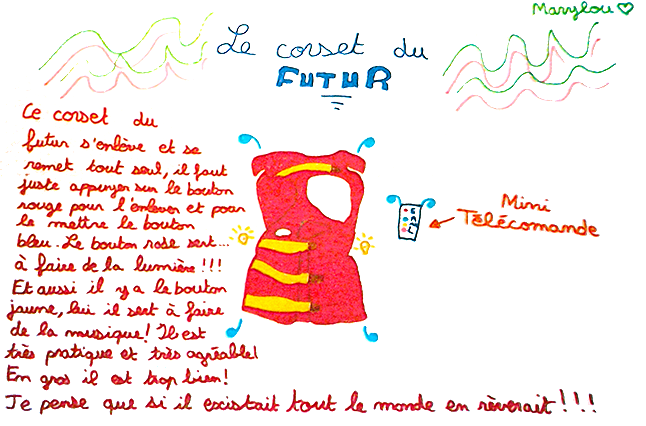 Marylou
Le corset du
FUTUR
Ce corset du
futur s'enlève et se
remet tout seul, il faut
juste appuyer sur le bouton
rouge pour l'enlever et pour
le mettre le bouton
bleu. Le bouton rose sert...
à faire de la lumière !!!
Et aussi il y a le bouton
jaune, lui il sert à faire
de la musique! Il est
très pratique et très agréable!
En gros il est trop bien!
Je pense que si il existait tout le monde en rêverait !!!
Mini
Télécomande